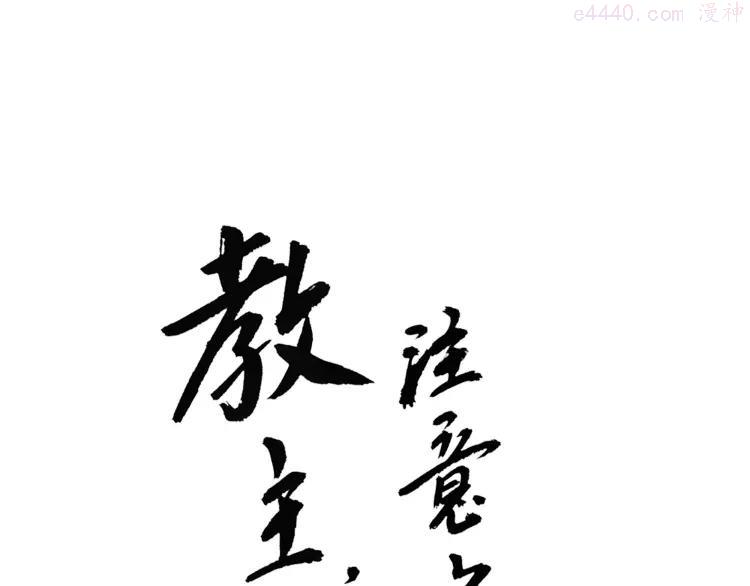 e4440.com 漫神
教主，
注意